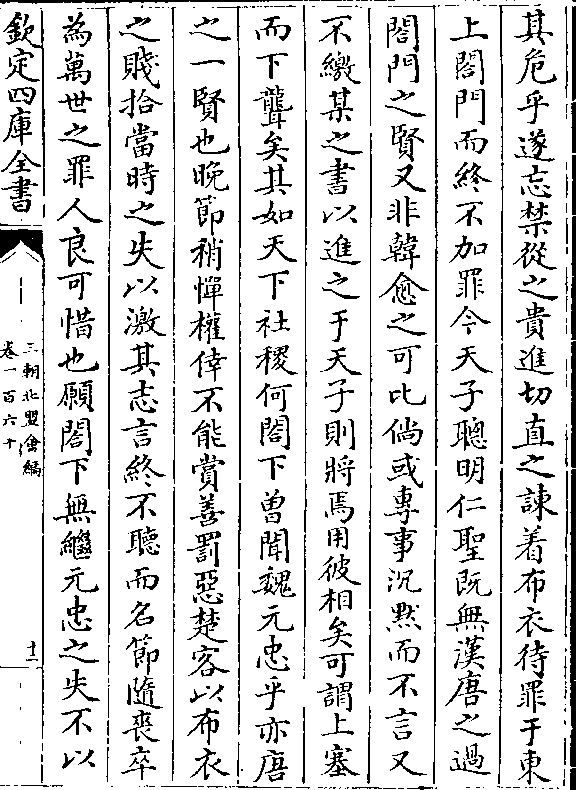 其危乎遂忘禁從之貴進切直之諫着布衣待罪于東
上閤門而終不加罪今天子聰明仁聖既無漢唐之過
閤門之賢又非韓愈之可比倘或專事沉黙而不言又
不繳某之書以進之于天子則將焉用彼相矣可謂上塞
而下聾矣其如天下社稷何閤下曽聞魏元忠乎亦唐
之一賢也晚節稍憚權倖不能賞善罰惡楚客以布衣
之賤拾當時之失以激其志言終不聽而名節隨喪卒
為萬世之罪人良可惜也願閤下無繼元忠之失不以
欽定四庫全書
三朝北盟㑹編
卷一百六十
十二